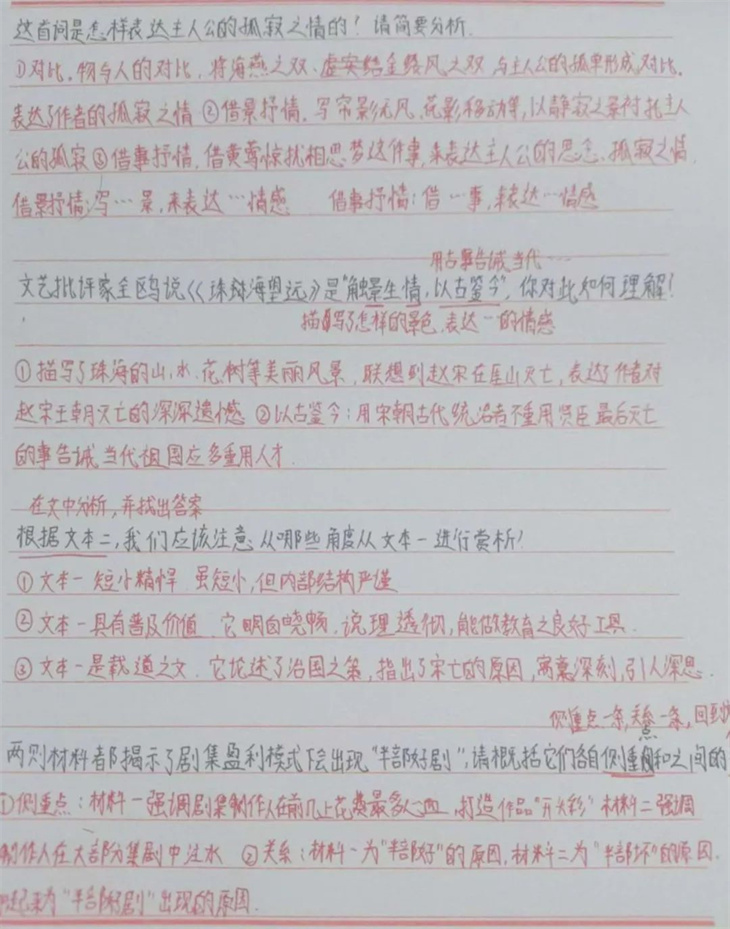 这首词是怎样表达主人公的孤寂之情的？请简要分析.
①对比.物与人的对比，将海燕之双、虚实结金缕凤之双 与主人公的孤单形成对比，
表达了作者的孤寂之情 ②借景抒情.写帘影无风、花影移动等，以静寂之景衬托主人
公的孤寂 ③借事抒情，借黄莺惊扰相思梦这件事，来表达主人公的思念、孤寂之情.
借景抒情：写…景，来表达…情感 借事抒情：借…事，来表达…情感
用古事告诫当代…
文艺批评家全区鸟说《珠海望远》是“触景生情，以古鉴今”，你对此如何理解？
描写了怎样的景色，表达…的情感
①描写了珠海的山、水、花、树等美丽风景，联想到赵宋在崖山灭亡，表达了作者对
赵宋王朝灭亡的深深遗憾 ②以古鉴今：用宋朝古代统治者不重用贤臣 最后灭亡
的事告诫当代祖国应多重用人才.
在文中分析，并找出答案
根据文本二，我们应该注意从哪些角度从文本一进行赏析？
①文本一 短小精悍 虽短小，但内部结构严谨
②文本一具有普及价值 它明白晓畅，说理透彻，能做教育之良好工具.
③文本一是载道之文.它论述了治国之策，指出了宋亡的原因，寓意深刻，引人深思.
侧重点一条，关系一条，回到
两则材料都揭示了剧集盈利模式下会出现“半部好剧”，请概括它们各自侧重和之间的
①侧重点：材料一强调剧集制作人在前几上花费最多心血，打造作品“开头彩” 材料二强调
制作人在大部分集剧中注水 ②关系：材料一为“半部好”的原因，材料二为“半部坏”的原因.
起来为“半部好剧”出现的原因.